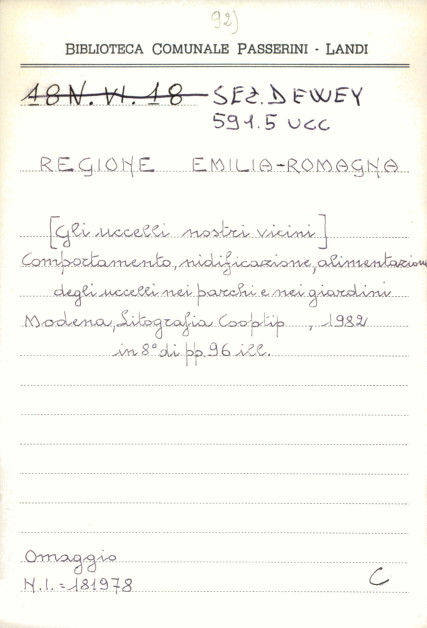 92)
BIBLIOTECA COMUNALE PASSERINI - LANDI
18 N. VI. 18 SEZ. DEWEY
591.5 UCC
REGIONE EMILIA-ROMAGNA
[Gli uccelli nostri vicini]
Comportamento, nidificazione, alimentazione
degli uccelli nei parchi e nei giardini
Modena, Litografia Cooptip , 1982
in 8° di pp. 96 ill.
Omaggio
N.I. = 181978
C